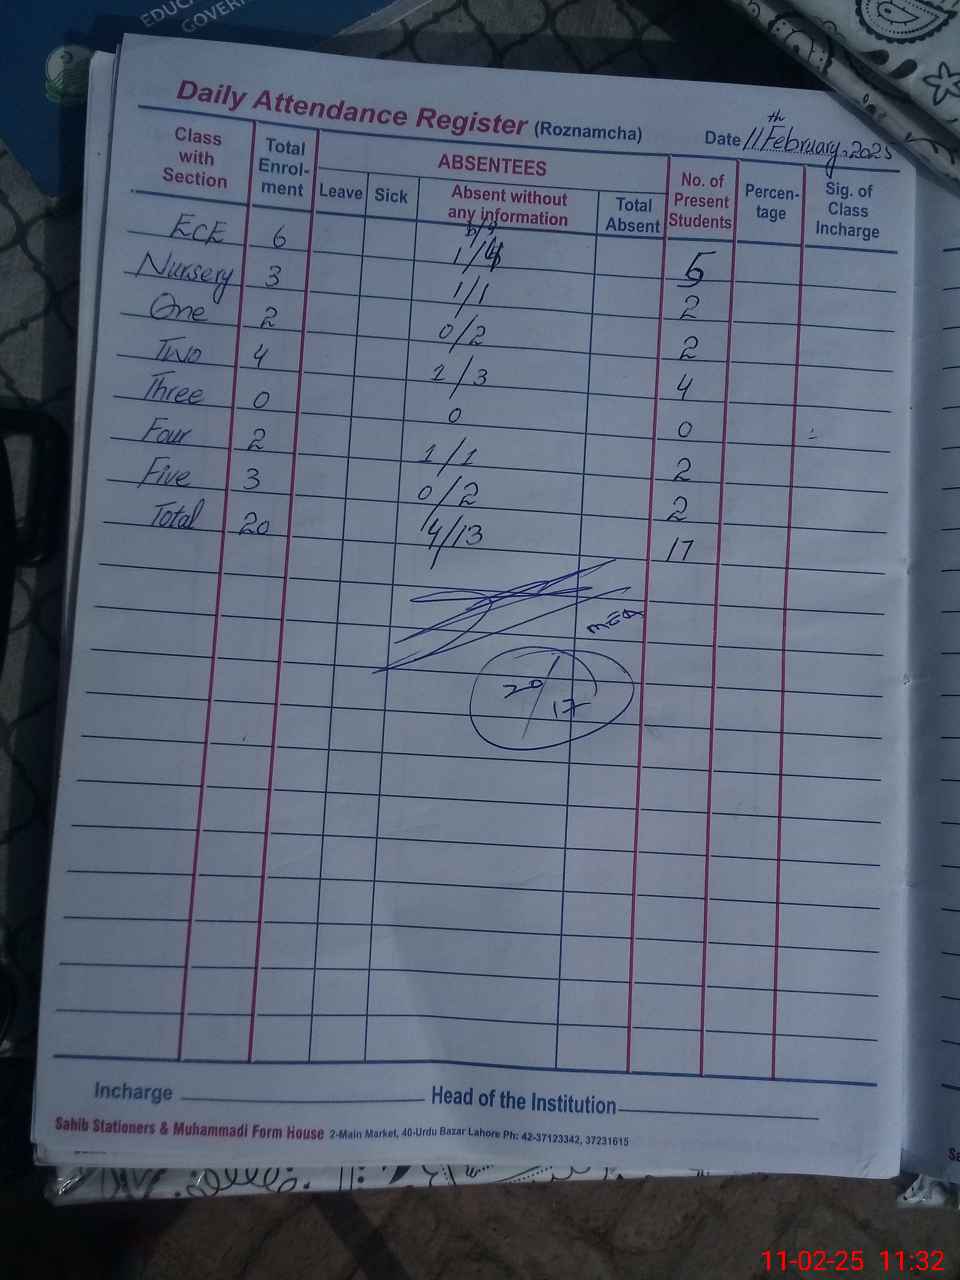 EDUC
GOVER
Daily Attendance Register (Roznamcha) Date 11th February, 2025
Class with Section Total Enrol-ment ABSENTEES No. of Present Students Percen-tage Sig. of Class Incharge
Leave Sick Absent without any information Total Absent
b/g
ECE 6 1/4 5
Nursery 3 1/1 2
One 2 0/2 2
Two 4 1/3 4
Three 0 0 0
Four 2 1/1 2
Five 3 0/2 2
Total 20 4/13 17
MEA
20/17
Incharge Head of the Institution
Sahib Stationers & Muhammadi Form House 2-Main Market, 40-Urdu Bazar Lahore Ph: 42-37123342, 37231615
Sa
11-02-25 11:32